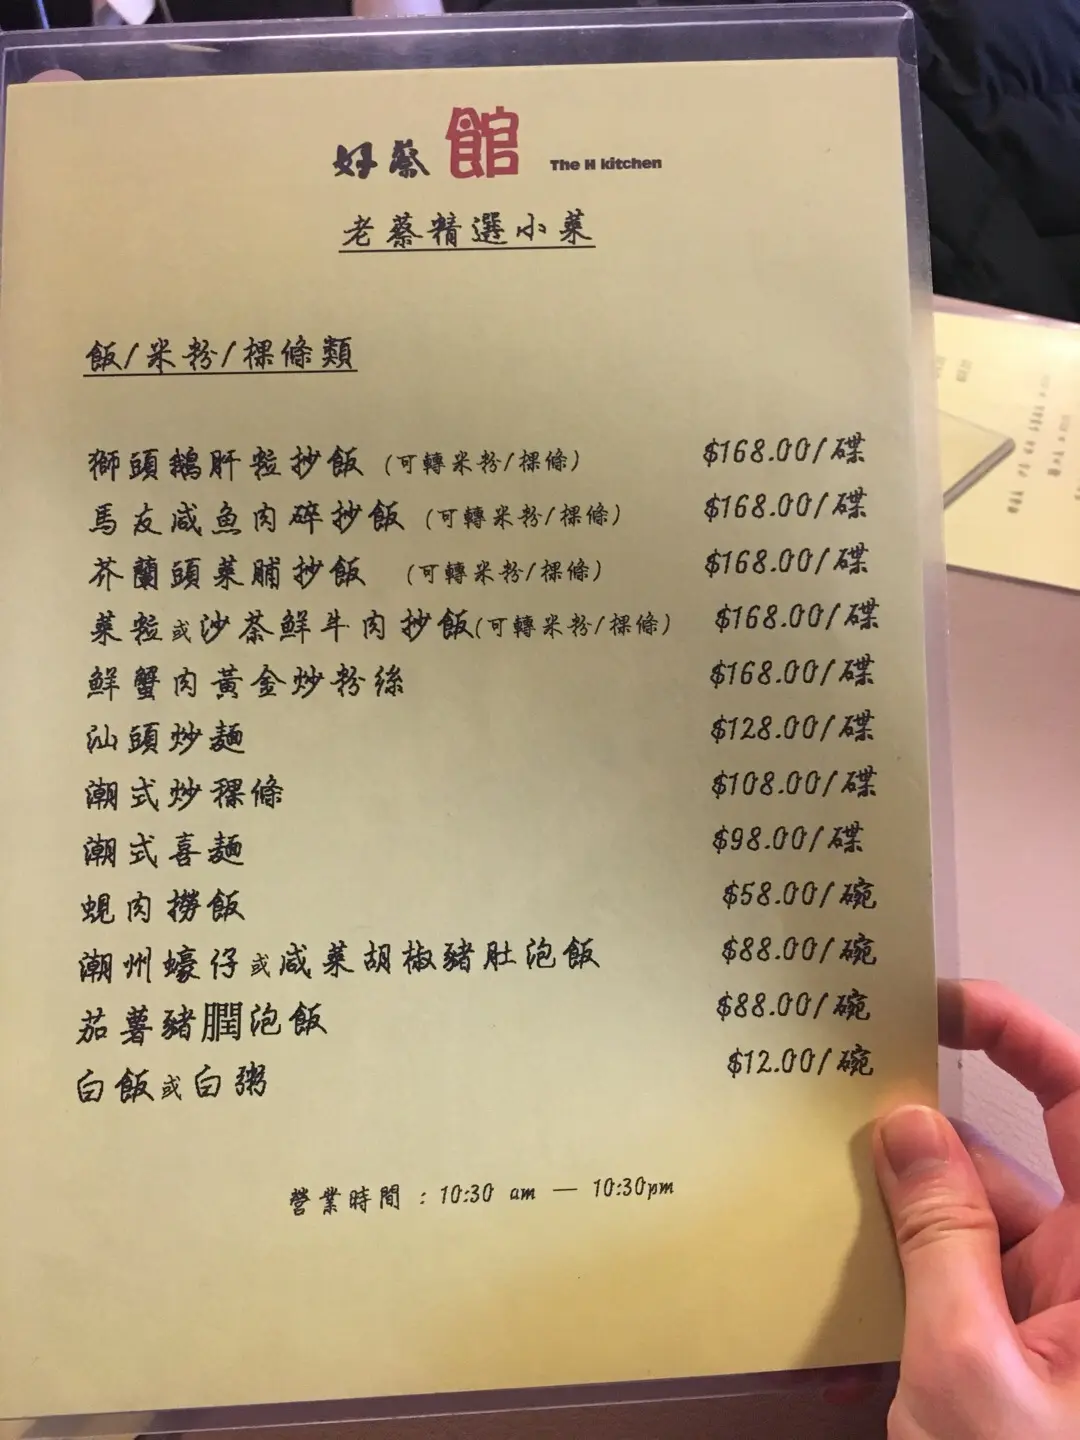 好蔡館 The H kitchen
老蔡精選小菜
飯/米粉/粿條類
獅頭鵝肝粒抄飯 (可轉米粉/粿條) $168.00/碟
馬友咸魚肉碎抄飯 (可轉米粉/粿條) $168.00/碟
芥蘭頭菜脯抄飯 (可轉米粉/粿條) $168.00/碟
菜粒或沙茶鮮牛肉抄飯(可轉米粉/粿條) $168.00/碟
鮮蟹肉黃金炒粉絲 $168.00/碟
汕頭炒麵 $128.00/碟
潮式炒粿條 $108.00/碟
潮式喜麵 $98.00/碟
蜆肉撈飯 $58.00/碗
潮州蠔仔或咸菜胡椒豬肚泡飯 $88.00/碗
茄薯豬膶泡飯 $88.00/碗
白飯或白粥 $12.00/碗
營業時間 : 10:30 am — 10:30pm